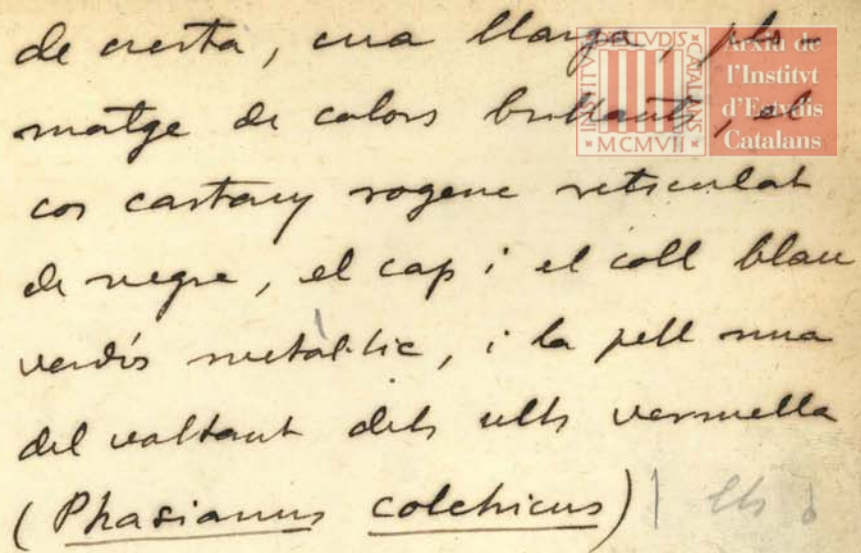 de cresta, cua llarga, plo-
matge de colors brillants, el
cos castany rogenc reticulat
de negre, el cap i el coll blau
verdós metàl·lic, i la pell nua
del voltant dels ulls vermella
(Phasianus colchicus) | Els
INSTITVT D'ESTVDIS CATALANS
MCMVII
Arxiu de
l'Institvt
d'Estvdis
Catalans